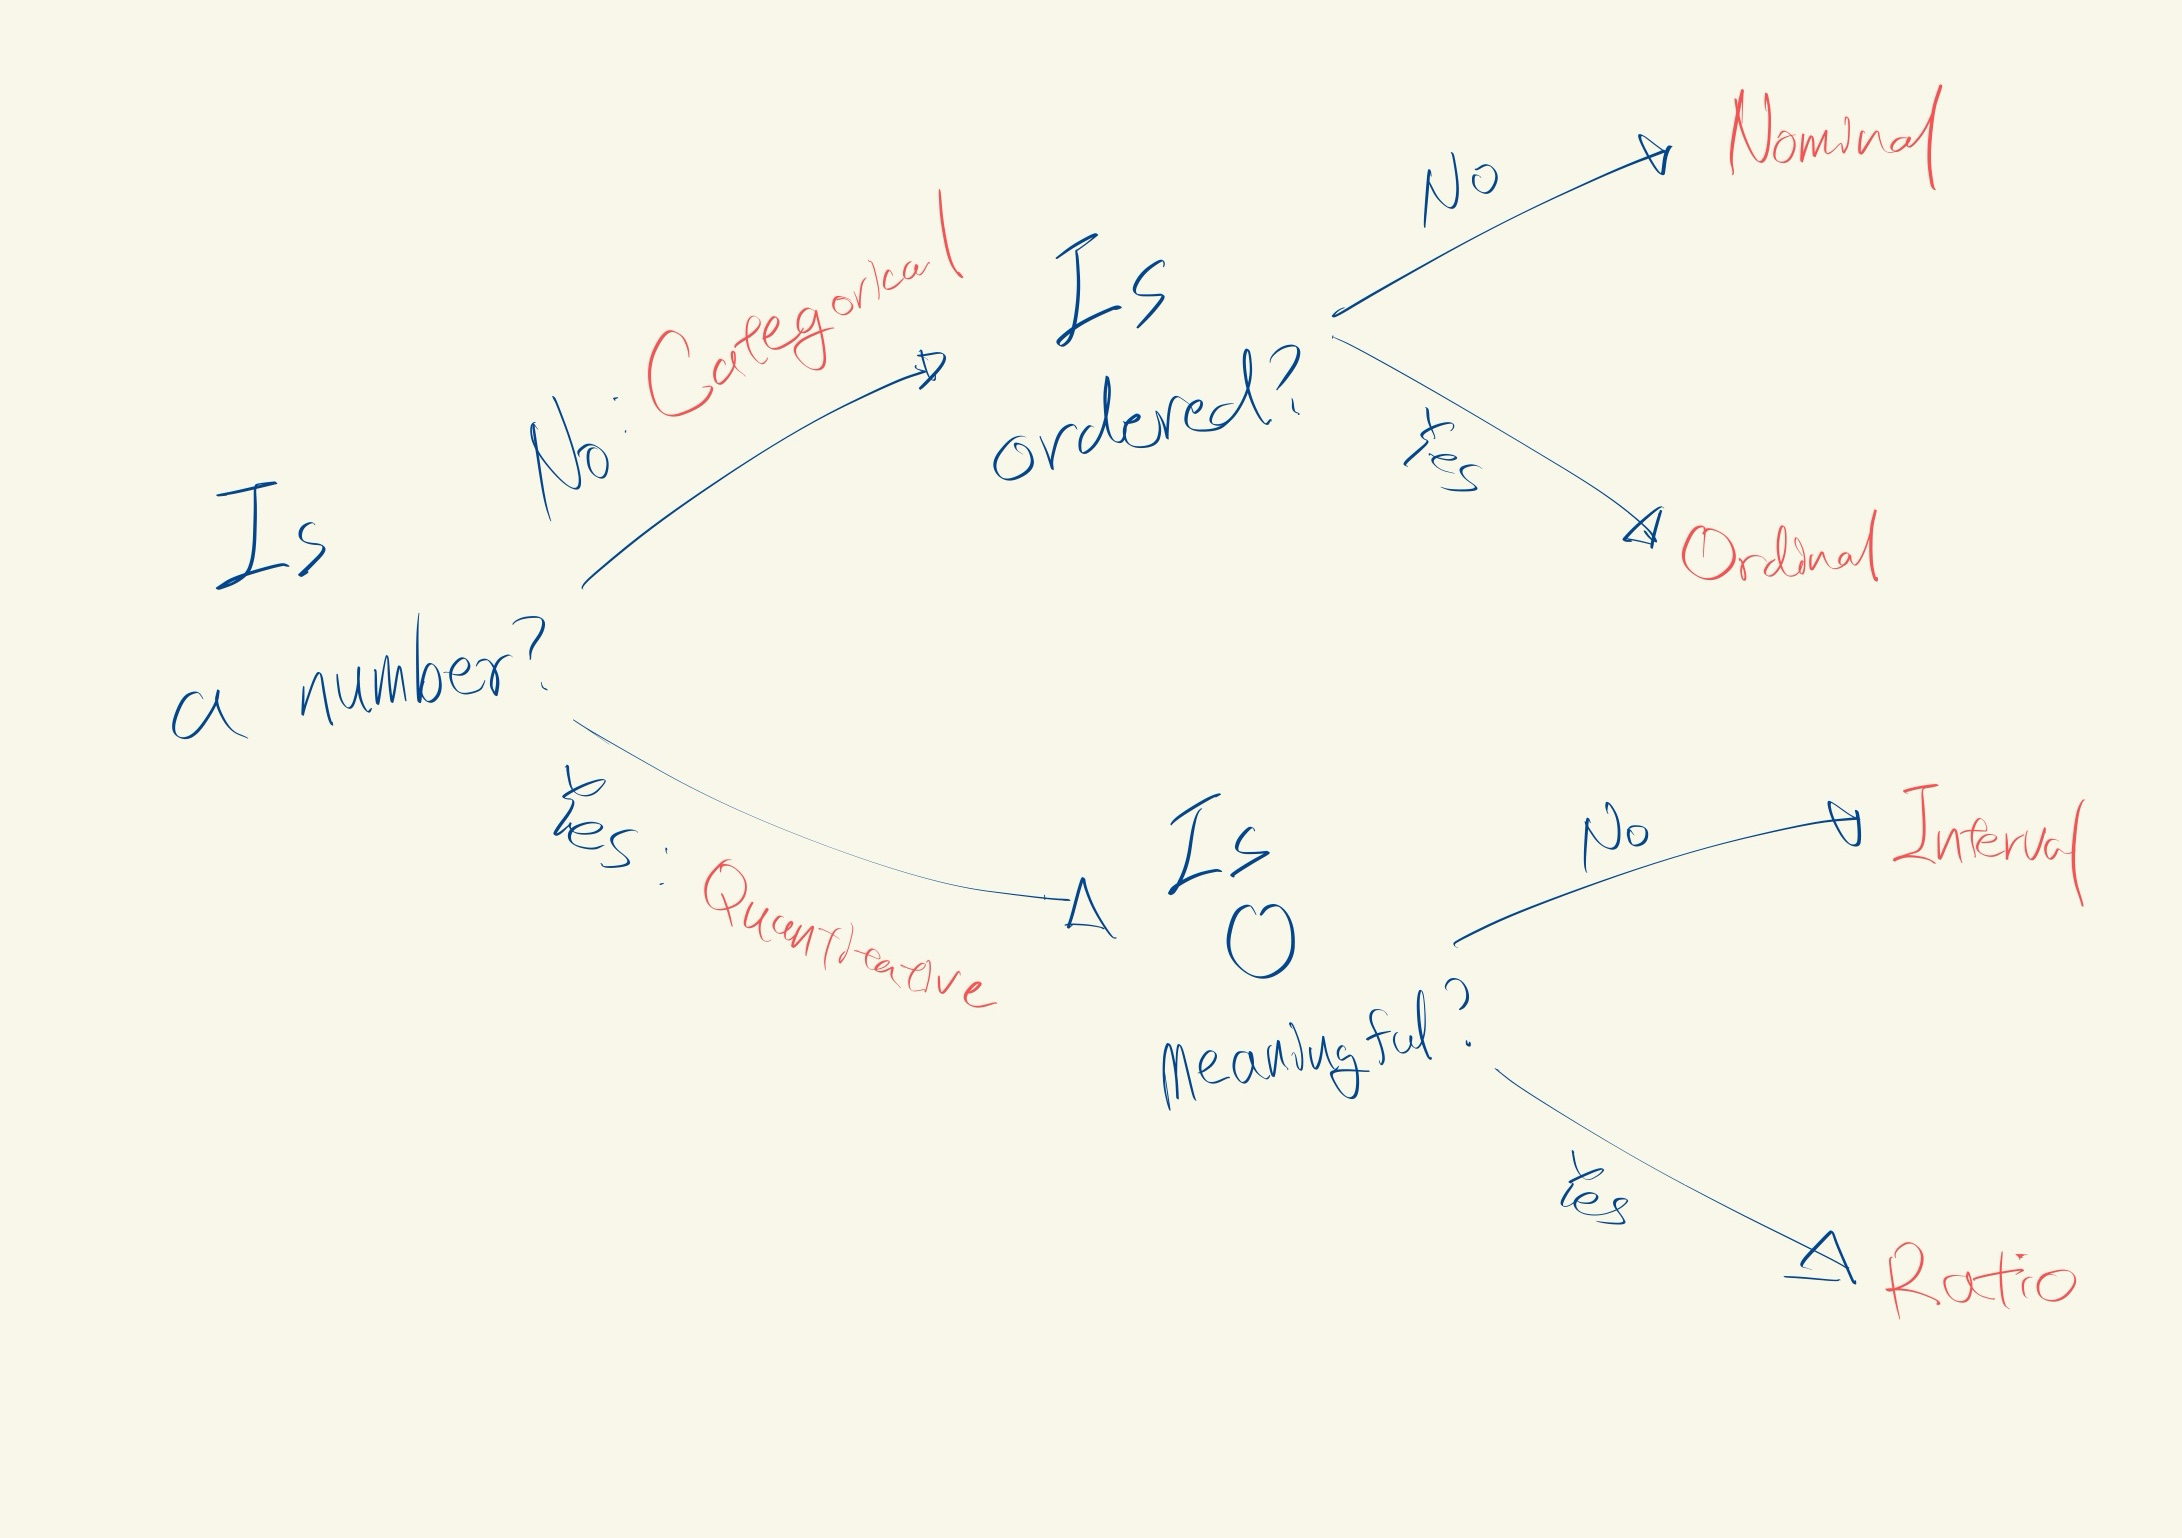 Is
a number?
No: Categorical
Is
ordered?
No
Nominal
Yes
Ordinal
Yes: Quantitative
Is
0
meaningful?
No
Interval
Yes
Ratio